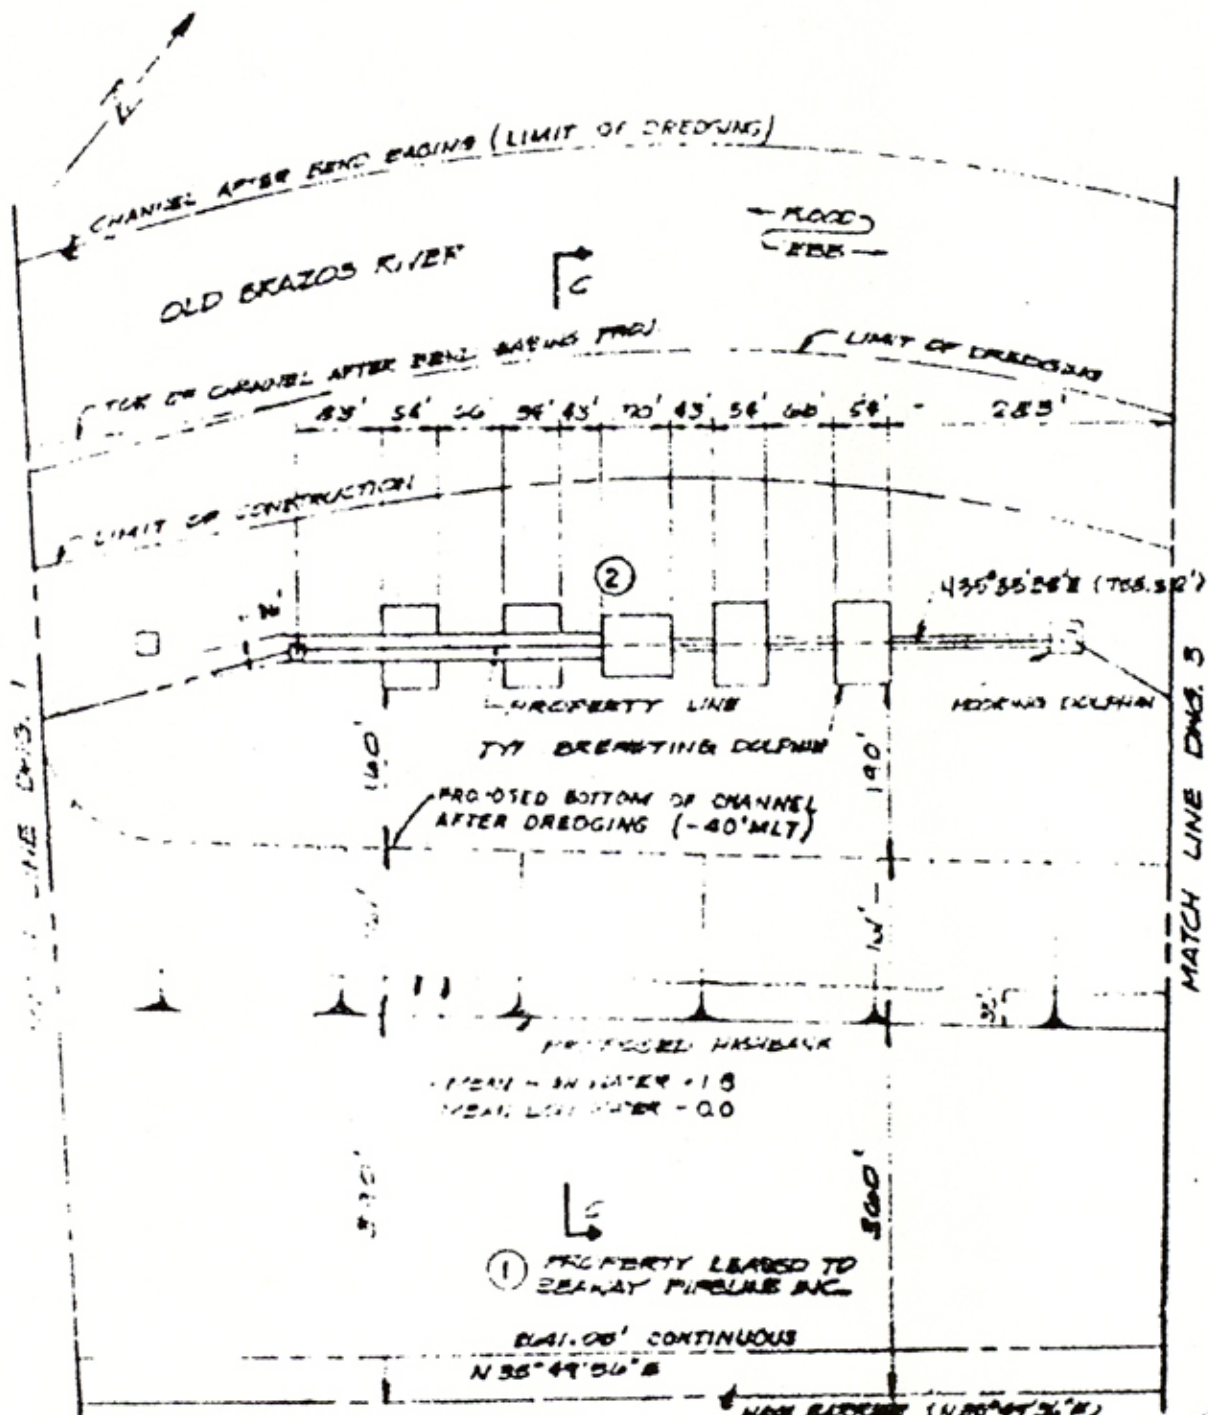 CHANNEL AFTER BEND EASING (LIMIT OF DREDGING)
FLOOD
EBB
OLD BRAZOS RIVER
C
TOE OF CHANNEL AFTER BEND EASING PROJ.
LIMIT OF DREDGING
83' 54' 66' 54' 43' 70' 43' 54' 66' 54' 283'
LIMIT OF CONSTRUCTION
2
16'
PROPERTY LINE
MOORING DOLPHIN
TYP BREASTING DOLPHIN
160'
190'
PROPOSED BOTTOM OF CHANNEL
AFTER DREDGING (-40' MLT)
MATCH LINE DWG. 3
LINE DWG. 1
101'
35'
PROPOSED WASHBANK
MEAN HIGH WATER +1.8
MEAN LOW WATER - 0.0
360'
1 PROPERTY LEASED TO
SEAWAY PIPELINE INC.
CONTINUOUS
N 35° 49' 56" E